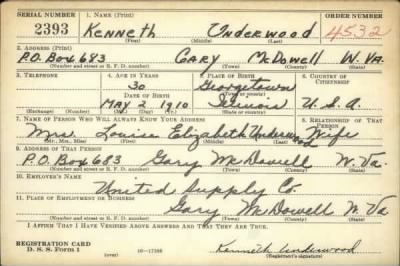 SERIAL NUMBER 1. NAME (Print) ORDER NUMBER
2393 KENNETH Underwood 4532
(First) (Middle) (Last)
2. ADDRESS (Print)
P.O. Box 683 GARY McDowell W. VA.
(Number and street or R. F. D. number) (Town) (County) (State)
3. TELEPHONE 4. AGE IN YEARS 5. PLACE OF BIRTH 6. COUNTRY OF CITIZENSHIP
30 Georgetown
DATE OF BIRTH (Town or county)
MAY 2 1910 Illinois U.S.A.
(Exchange) (Number) (Mo.) (Day) (Yr.) (State or country)
7. NAME OF PERSON WHO WILL ALWAYS KNOW YOUR ADDRESS 8. RELATIONSHIP OF THAT PERSON
Mrs. Louise Elizabeth Underwood Wife
(Mr., Mrs., Miss) (First) (Middle) (Last)
9. ADDRESS OF THAT PERSON
P.O. Box 683 Gary McDowell W. Va.
(Number and street or R. F. D. number) (Town) (County) (State)
10. EMPLOYER'S NAME
United Supply Co.
11. PLACE OF EMPLOYMENT OR BUSINESS
Gary McDowell W. Va
(Number and street or R. F. D. number) (Town) (County) (State)
I AFFIRM THAT I HAVE VERIFIED ABOVE ANSWERS AND THAT THEY ARE TRUE.
REGISTRATION CARD
D. S. S. Form 1 (over) Kenneth Underwood
(Registrant's signature)